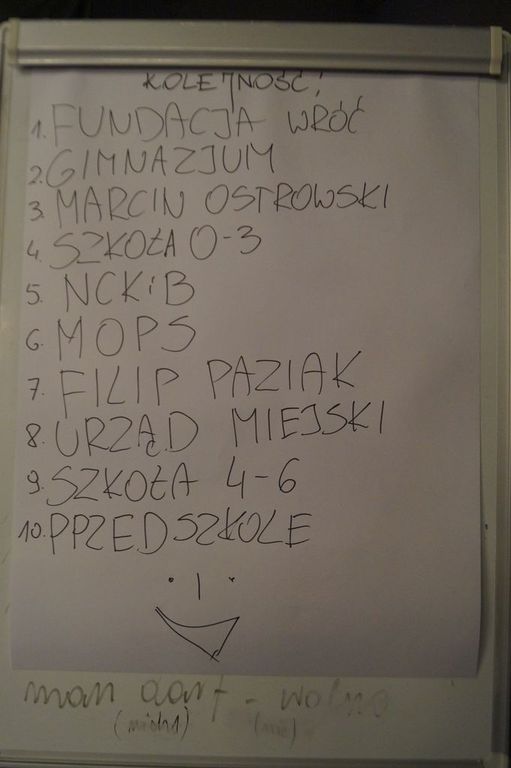 KOLEJNOŚĆ!
1. FUNDACJA WRÓĆ
2. GIMNAZJUM
3. MARCIN OSTROWSKI
4. SZKOŁA 0-3
5. NCKiB
6. MOPS
7. FILIP PAZIAK
8. URZĄD MIEJSKI
9. SZKOŁA 4-6
10. PPZEDSZKOLE
man darf - wolno